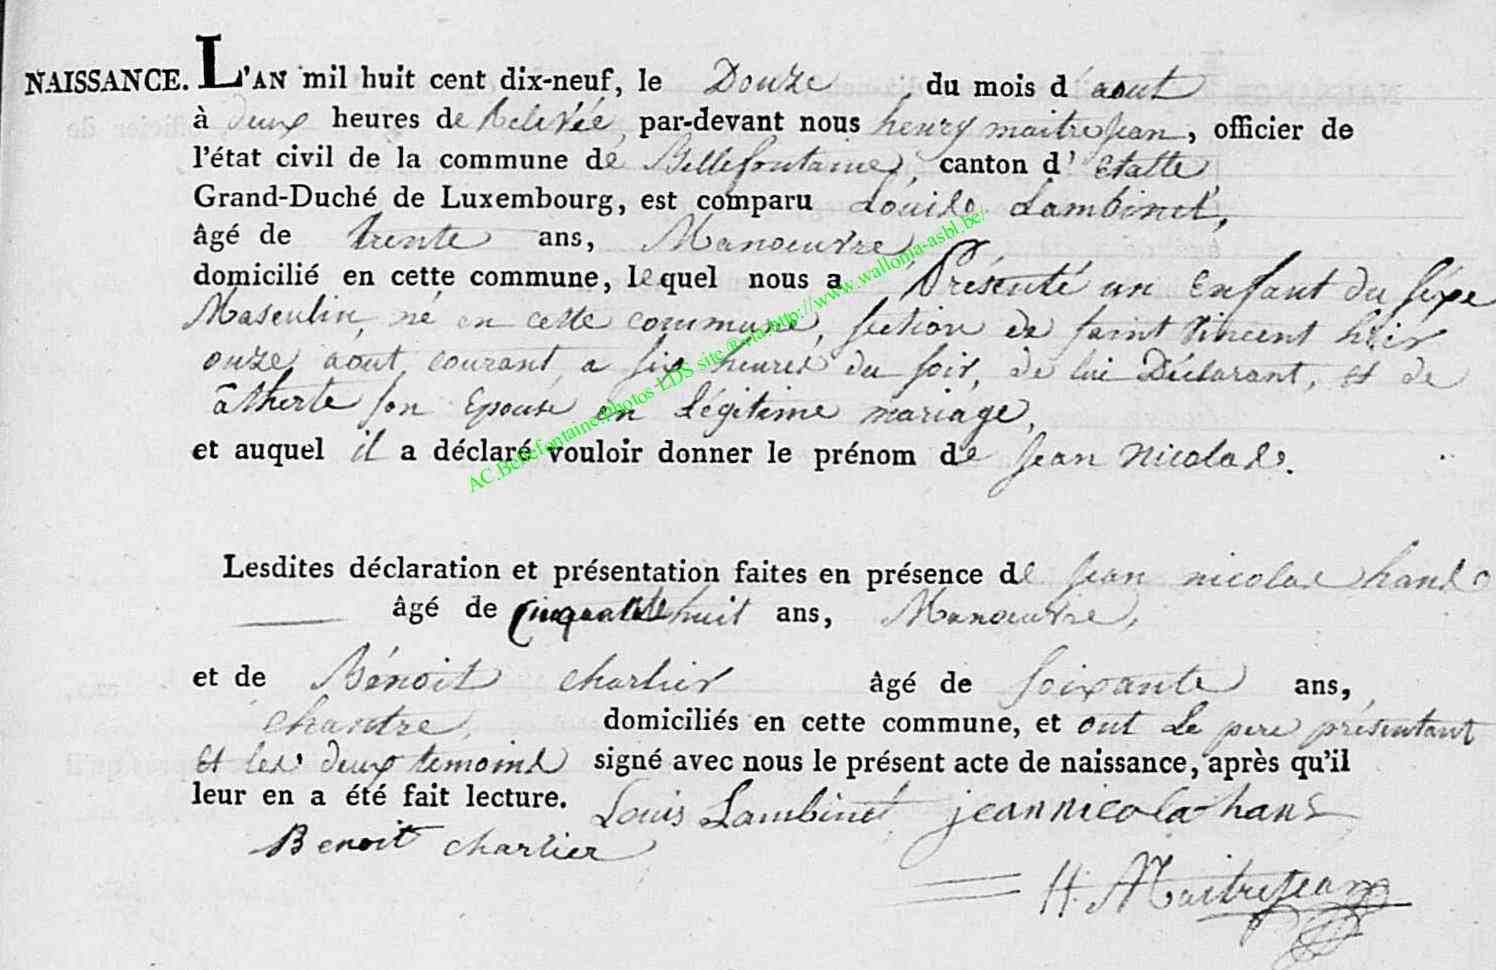 NAISSANCE. L'AN mil huit cent dix-neuf, le Douze du mois d'aout
à deux heures de Relevée, par-devant nous henry maitrejean, officier de
l'état civil de la commune de Bellefontaine, canton d'Etalle,
Grand-Duché de Luxembourg, est comparu Louis Lambinet,
âgé de trente ans, Manoeuvre,
domicilié en cette commune, lequel nous a Présenté un Enfant du sexe
Masculin, né en cette commune, section de saint Vincent hier
onze aout courant a six heures du soir, de lui Déclarant, et de
son Epouse en Légitime mariage,
et auquel il a déclaré vouloir donner le prénom de jean Nicolas.
Lesdites déclaration et présentation faites en présence de jean nicolas hans
âgé de Cinquante huit ans, Manoeuvre,
et de Bénoit charlier âgé de soixante ans,
chantre, domiciliés en cette commune, et ont Le pere présentant
et les deux temoins signé avec nous le présent acte de naissance, après qu'il
leur en a été fait lecture. Louis Lambinet jean nicola hans
Benoit charlier
H. Maitrejean
AC.Bellefontaine.Photos LDS site http://www.wallonia-asbl.be/